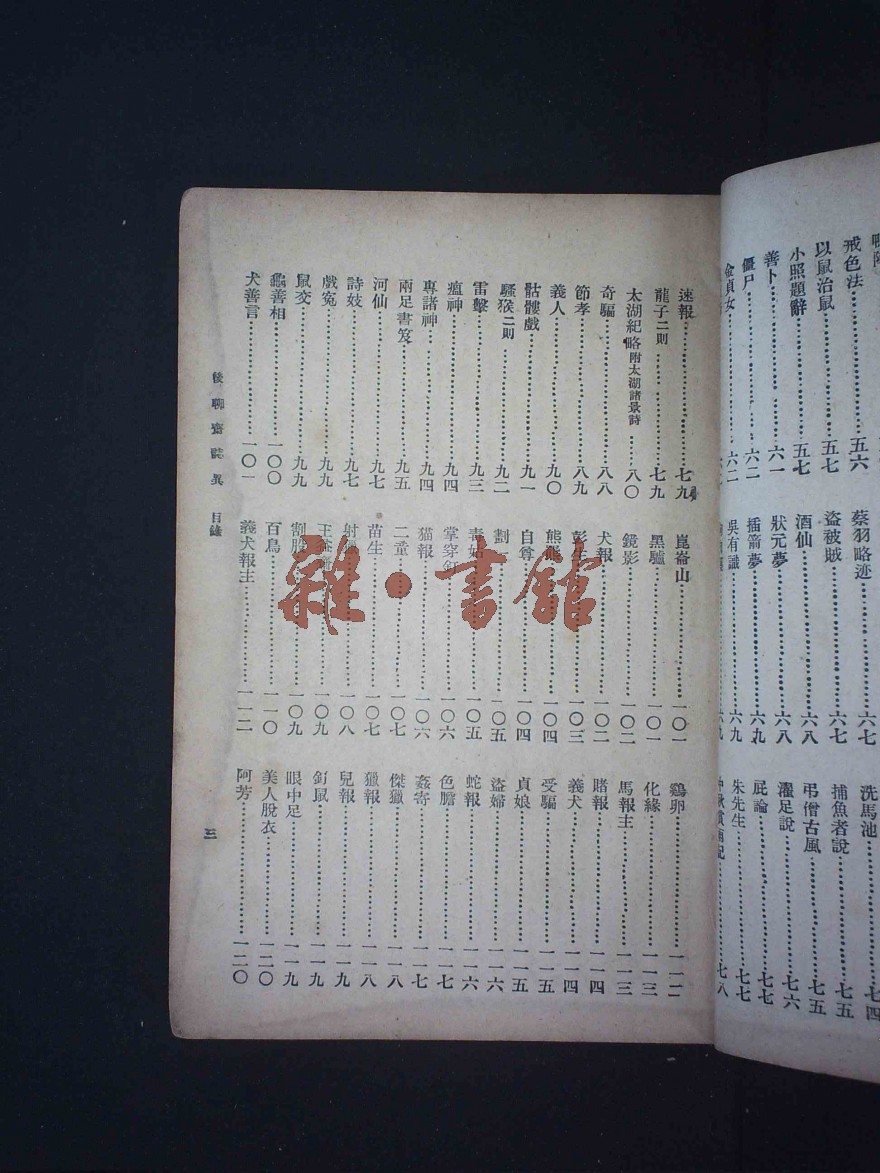 戒色法……五六
以鼠治鼠……五七
小照題辭……五七
善卜……六一
僵尸……六二
金貞女……六二
蔡羽略迹……六七
盜被賊……六七
酒仙……六八
狀元夢……六八
插箭夢……六九
吳有讖……六九
洗馬池……七四
捕魚者說……七五
弔僧古風……七五
濯足說……七六
屁論……七七
朱先生……七七
七八
速報……七九
龍子二則……七九
太湖紀略附太湖諸景詩……八〇
奇騙……八八
節孝……八九
義人……九〇
骷髏戲……九一
騷猴二則……九二
雷擊……九三
瘟神……九四
專諸神……九四
兩足書笈……九五
河仙……九七
詩妓……九七
戲寃……九九
鼠交……九九
龜善相……一〇〇
犬善言……一〇一
崑崙山……一〇一
黑驢……一〇一
鏡影……一〇二
犬報……一〇二
彭生……一〇三
熊……一〇四
自尊……一〇四
劃……一〇五
青姑……一〇五
掌穿釘……一〇六
猫報……一〇六
二童……一〇七
苗生……一〇七
射……一〇八
王……一〇九
割股……一〇九
百鳥……一一〇
義犬報主……一一二
鷄卵……一一二
化緣……一一三
馬報主……一一三
賭報……一一四
義犬……一一四
受騙……一一五
貞娘……一一五
盜婦……一一六
蛇報……一一六
色膽……一一七
姦寄……一一七
傑獵……一一八
獵報……一一八
兒報……一一九
釘鼠……一一九
眼中足……一一九
美人脫衣……一二〇
阿芳……一二〇
後聊齋誌異 目錄
三
雜·書館